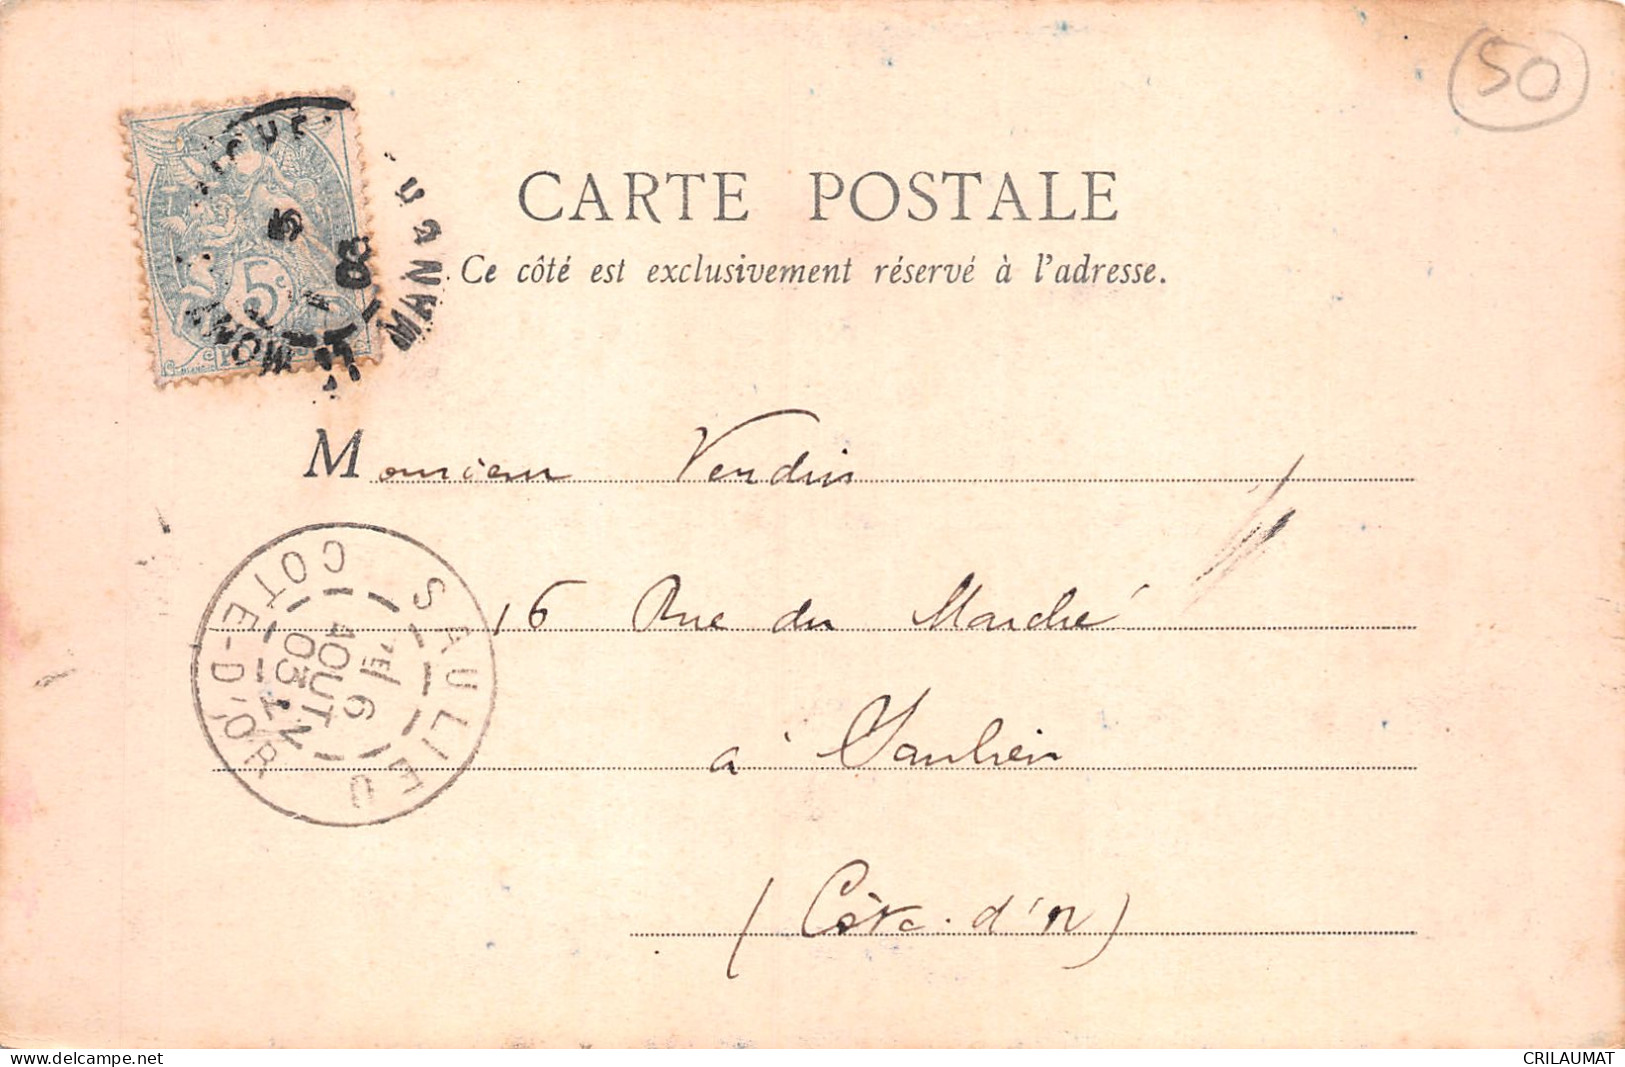 50
CARTE POSTALE
Ce côté est exclusivement réservé à l'adresse.
5c
03
MANS
Monsieur Verdin
16 Rue du Marché
à Saulieu
(Côte-d'Or)
SAULIEU
COTE-D'OR
6
AOUT
03
delcampe.net
CRILAUMAT